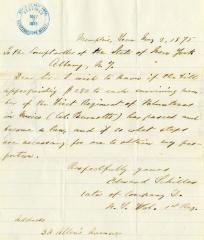 Memphis, Tenn Aug 2, 1875
To the Comptroller of the State of New York
Albany, N.Y.
Dear Sir: I wish to know if the bill
appropriating $250 to each surviving mem-
ber of the First Regiment of Volunteers
in Mexico (Col. Burnett's) has passed and
become a law, and if so what steps
are necessary for me to obtain my pro-
portion.
Respectfully yours
Edward
late of Company
N.Y. Vol. 1st Reg.
Address